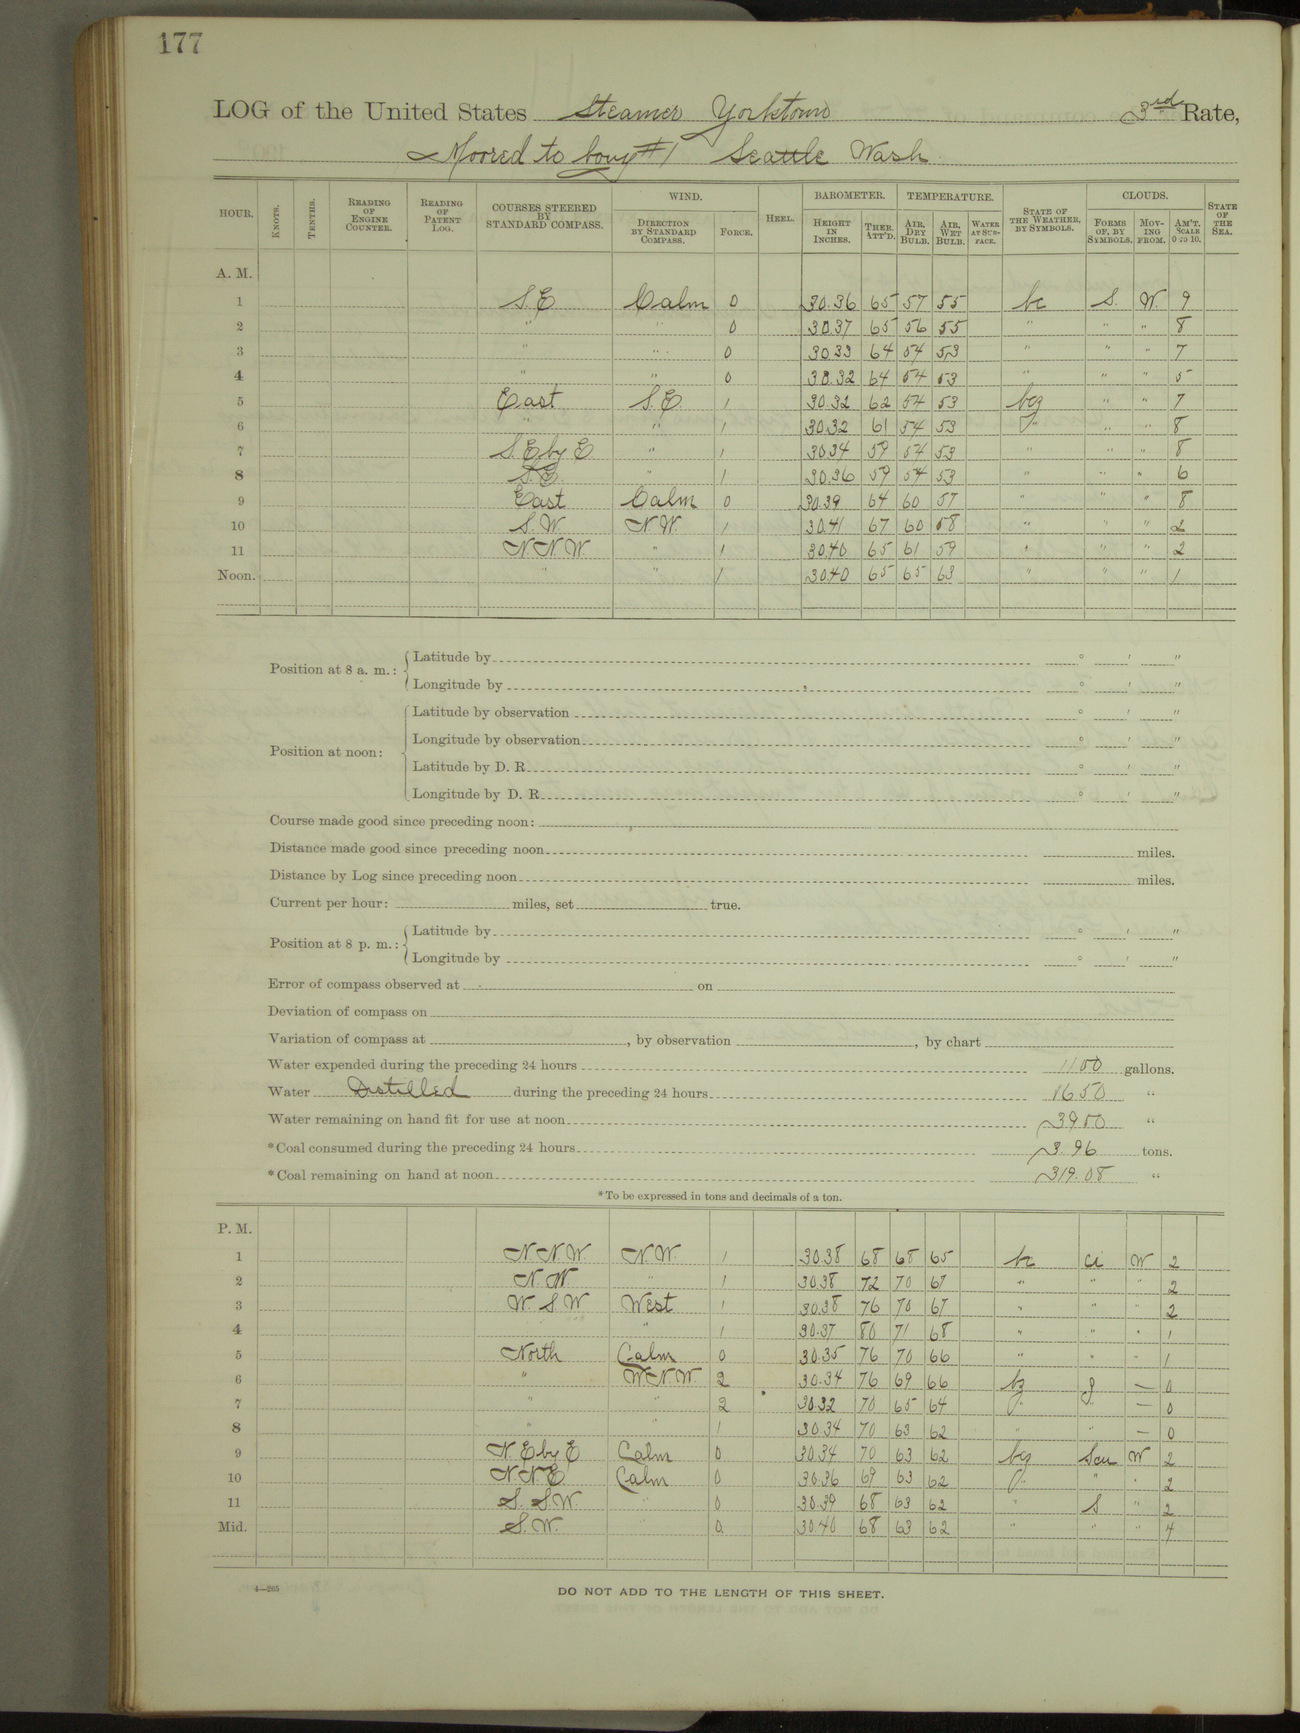 177
LOG of the United States Steamer Yorktown 3rd Rate,
Moored to bouy #1 Seattle Wash.
HOUR. KNOTS. TENTHS. READING OF ENGINE COUNTER. READING OF PATENT LOG. COURSES STEERED BY STANDARD COMPASS. WIND. DIRECTION BY STANDARD COMPASS. FORCE. HEEL. BAROMETER. HEIGHT IN INCHES. THER. ATT'D. TEMPERATURE. AIR, DRY BULB. AIR, WET BULB. WATER AT SUR-FACE. STATE OF THE WEATHER, BY SYMBOLS. CLOUDS. FORMS OF, BY SYMBOLS. MOV-ING FROM. AM'T, SCALE 0 TO 10. STATE OF THE SEA.
A. M.
1 S.E Calm 0 30.36 65 57 55 bc S. W. 9
2 " " 0 30.37 65 56 55 " " " 8
3 " " 0 30.33 64 54 53 " " " 7
4 " " 0 30.32 64 54 53 " " " 5
5 East S.E. 1 30.32 62 54 53 bcg " " 7
6 " " 1 30.32 61 54 53 " " " 8
7 S.E by E " 1 30.34 59 54 53 " " " 8
8 S.E. " 1 30.36 59 54 53 " " " 6
9 East Calm 0 30.39 64 60 57 " " " 8
10 S.W. N.W. 1 30.41 67 60 58 " " " 2
11 N.N.W. " 1 30.40 65 61 59 " " " 2
Noon. " " 1 30.40 65 65 63 " " " 1
Position at 8 a. m.: Latitude by ° ′ ″
Longitude by ° ′ ″
Position at noon: Latitude by observation ° ′ ″
Longitude by observation ° ′ ″
Latitude by D. R. ° ′ ″
Longitude by D. R. ° ′ ″
Course made good since preceding noon:
Distance made good since preceding noon miles.
Distance by Log since preceding noon miles.
Current per hour: miles, set true.
Position at 8 p. m.: Latitude by ° ′ ″
Longitude by ° ′ ″
Error of compass observed at on
Deviation of compass on
Variation of compass at , by observation , by chart
Water expended during the preceding 24 hours 1100 gallons.
Water Distilled during the preceding 24 hours 1650 "
Water remaining on hand fit for use at noon 3950 "
*Coal consumed during the preceding 24 hours 3.96 tons.
*Coal remaining on hand at noon 319.08 "
*To be expressed in tons and decimals of a ton.
P. M.
1 N.N.W. N.W. 1 30.38 68 68 65 bc Ci W 2
2 N.W " 1 30.38 72 70 67 " " " 2
3 W.S.W West 1 30.38 76 70 67 " " " 2
4 " " 1 30.37 80 71 68 " " " 1
5 North Calm 0 30.35 76 70 66 " " " 1
6 " W.N.W. 2 30.34 76 69 66 bg g — 0
7 " " 2 30.32 70 65 64 " " — 0
8 " " 1 30.34 70 63 62 " " — 0
9 N.E by E Calm 0 30.34 70 63 62 bcg Scu W 2
10 N.N.E. Calm 0 30.36 69 63 62 " " " 2
11 S.S.W. " 0 30.39 68 63 62 " S " 2
Mid. S.W. " 0 30.40 68 63 62 " " " 4
4—265
DO NOT ADD TO THE LENGTH OF THIS SHEET.